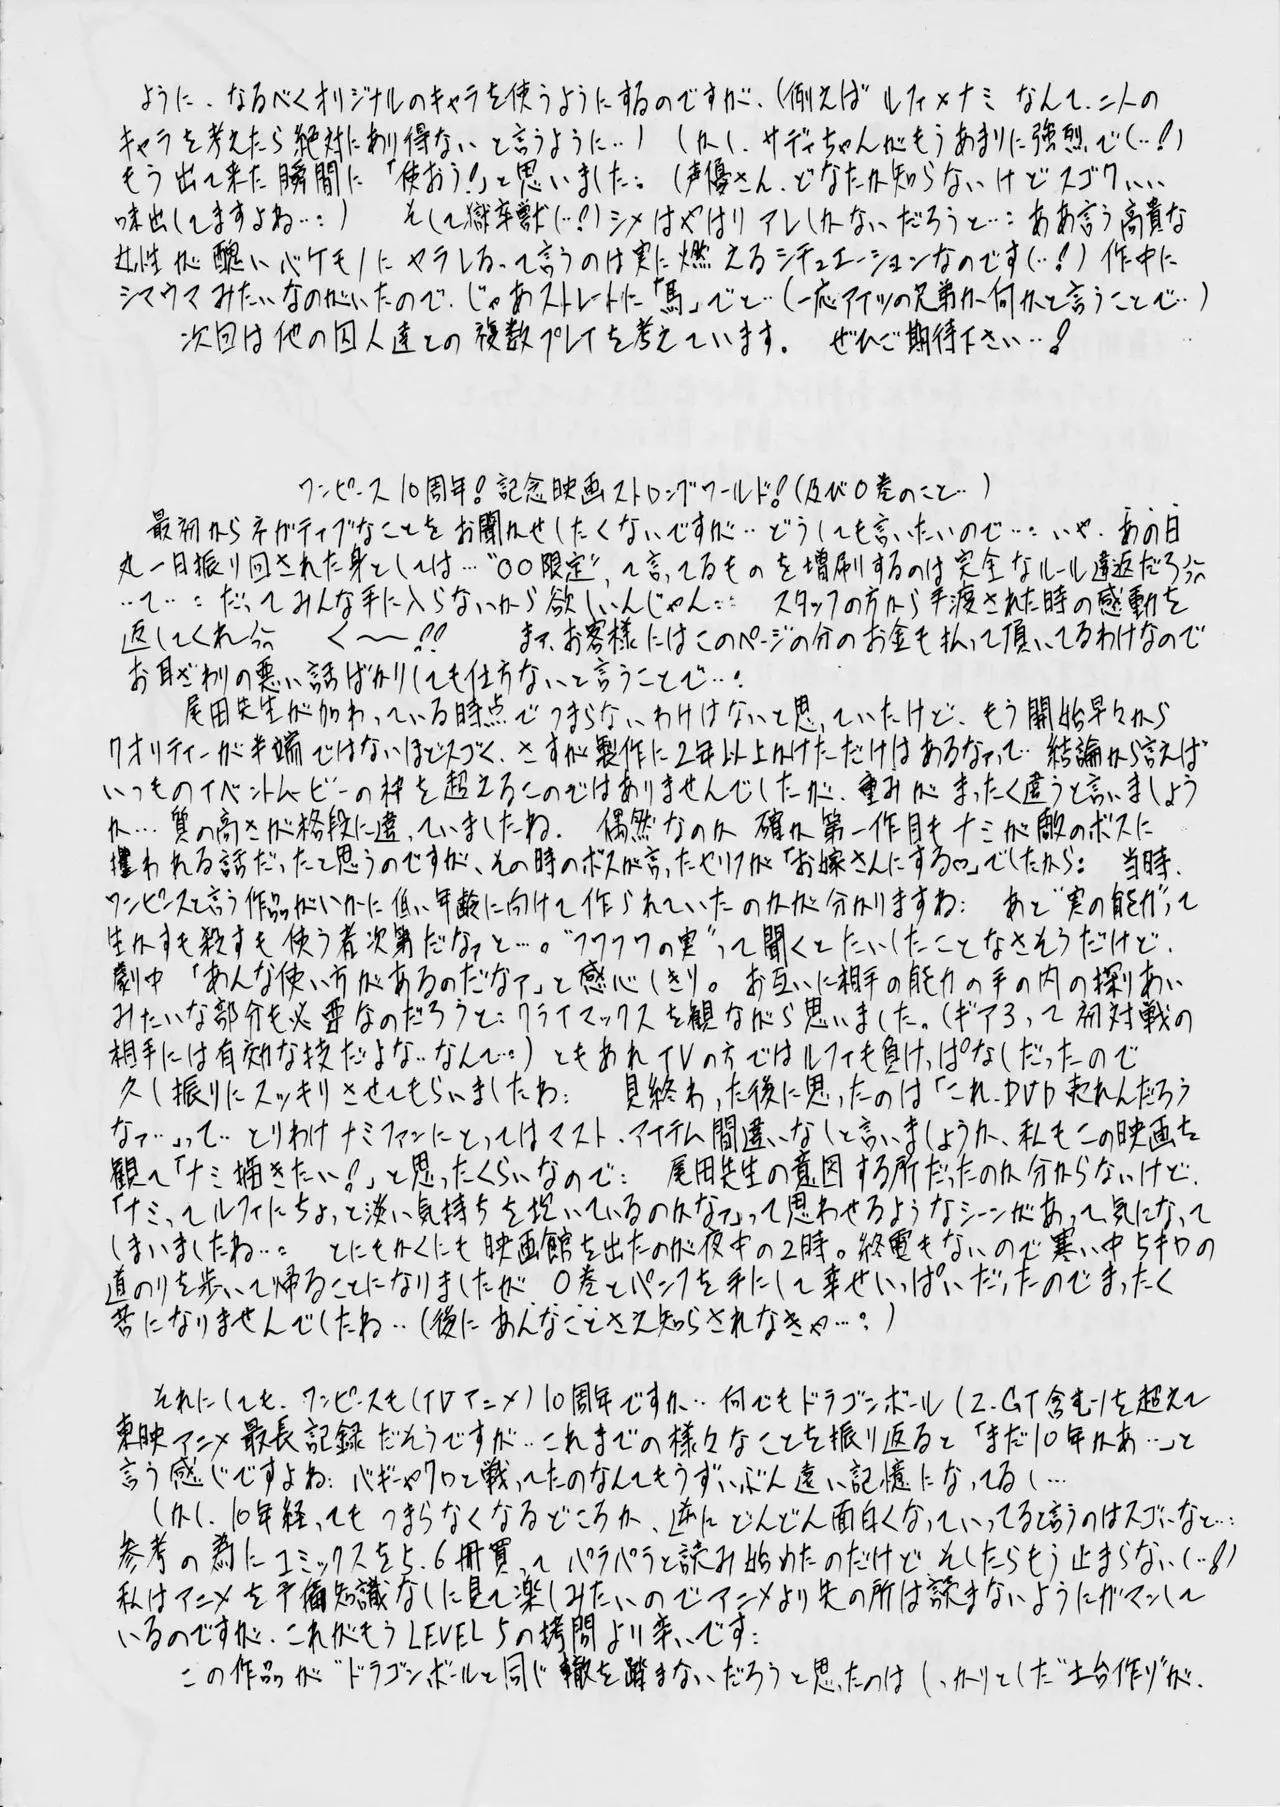 ように、なるべくオリジナルのキャラを使うようにするのですが、(例えば ルフィ×ナミ なんて、二人の
キャラを考えたら絶対にあり得ない と言うように…) しかし、サディちゃんがもうあまりに強烈で(…!)
もう出て来た瞬間に「使おう!」と思いました: (声優さん、どなたか知らないけどスゴクいい
味出してますよね…:) そして獄卒獣(…!)シメはやはり アレしかないだろうと…: ああ言う高貴な
女性が醜いバケモノにヤラレるって言うのは実に燃えるシチュエーションなのです(…!) 作中に
シマウマみたいなのがいたので、じゃあストレートに「馬」でと…(一応アイツの兄弟か何かと言うことで…)
次回は他の囚人達との複数プレイを考えています。 ぜひご期待下さい…!
ワンピース10周年!記念映画ストロングワールド!(及び0巻のこと…)
最初からネガティブなことをお聞かせしたくないですが… どうしても言いたいので…: いや、あの日
丸一日振り回された身としては…"○○限定"って言ってるものを増刷するのは完全なルール違反だろ
…て…: だってみんな手に入らないから欲しいんじゃん:: スタッフの方から手渡された時の感動を
返してくれ く〜〜!! まァ、お客様にはこのページの分のお金も払って頂いてるわけなので
お耳ざわりの悪い話ばかりしても仕方ないと言うことで…:
尾田先生が加わっている時点でつまらないわけはないと思っていたけど、もう開始早々から
クオリティーが半端ではないほどスゴく、さすが製作に2年以上かけただけはあるなァって… 結論から言えば
いつものイベントムービーの枠を超えるものではありませんでしたが、重みがまったく違うと言いましょう
か… 質の高さが格段に違っていましたね. 偶然なのか 確か第一作目もナミが敵のボスに
攫われる話だったと思うのですが、その時のボスが言ったセリフが「お嫁さんにする♡」でしたから: 当時、
ワンピースと言う作品がいかに低い年齢に向けて作られていたのかが分かりますね: あと"実の能力"って
生かすも殺すも使う者次第だなァと…。"フワフワの実"って聞くとたいしたことなさそうだけど、
劇中「あんな使い方があるのだなァ」と感心しきり。 お互いに相手の能力の手の内の探りあい
みたいな部分も必要なのだろうと: クライマックスを観ながら思いました。(ギア3って初対戦の
相手には有効な技だよな…なんて:) ともあれTVの方ではルフィも負けっぱなしだったので
久し振りにスッキリさせてもらいましたね: 見終わった後に思ったのは「これ、DVD売れんだろう
なァ…」って… とりわけナミファンにとってはマスト・アイテム間違いなしと言いましょうか、私もこの映画を
観て「ナミ描きたい!」と思ったくらいなので: 尾田先生の意図する所だったのか分からないけど、
「ナミってルフィにちょっと淡い気持ちを抱いているのかなァ」って思わせるようなシーンがあって、気になって
しまいましたね…: とにもかくにも映画館を出たのが夜中の2時。終電もないので寒い中5キロの
道のりを歩いて帰ることになりましたが 0巻とパンフを手にして幸せいっぱいだったのでまったく
苦になりませんでしたね…(後にあんなことさえ知らされなきゃ…:)
それにしても、ワンピースも(TVアニメ)10周年ですか… 何でもドラゴンボール(Z、GT含む)を超えて
東映アニメ最長記録だそうですが… これまでの様々なことを振り返ると「まだ10年かぁ…」と
言う感じですよね: バギーやクロと戦ってたのなんてもうずいぶん遠い記憶になってるし…
しかし、10年経ってもつまらなくなるどころか、逆にどんどん面白くなっていってると言うのはスゴいなと…:
参考の為にコミックスを5、6冊買ってパラパラと読み始めたのだけど、そしたらもう止まらない(…!)
私はアニメを予備知識なしに見て楽しみたいのでアニメより先の所は読まないようにガマンして
いるのですが、これがもうLEVEL5の拷問より辛いです:
この作品が"ドラゴンボールと同じ轍を踏まないだろうと思ったのはしっかりとした"土台作り"が、